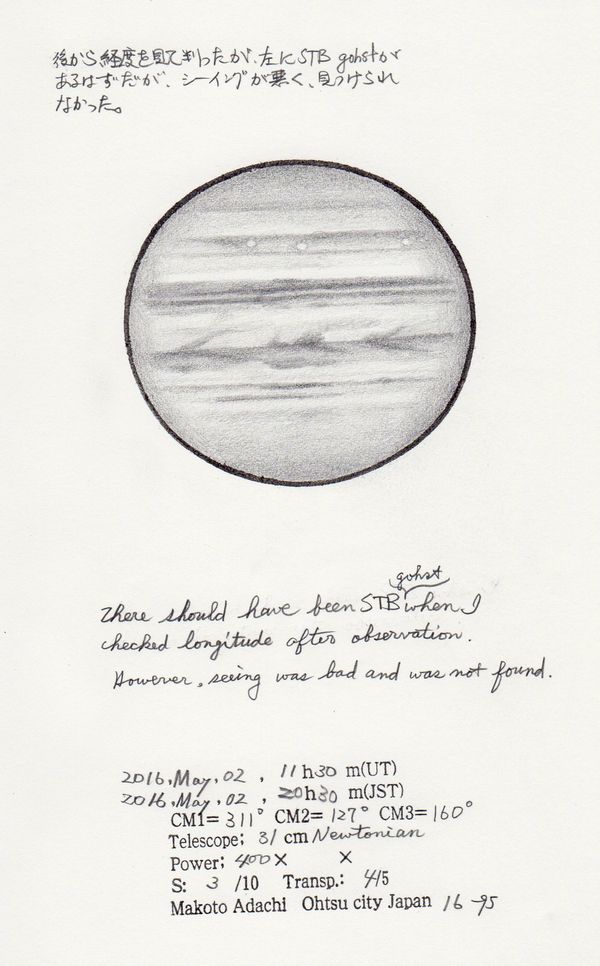 後から経度を見て判ったが、左にSTB gohstが
あるはずだが、シーイングが悪く、見つけられ
なかった。
gohst
There should have been STB when I
checked longitude after observation.
However, seeing was bad and was not found.
2016, May, 02 , 11h30 m(UT)
2016, May, 02 , 20h30 m(JST)
CM1= 311° CM2= 127° CM3= 160°
Telescope; 31 cm Newtonian
Power; 400× ×
S: 3 /10 Transp.: 4/5
Makoto Adachi Ohtsu city Japan 16-95